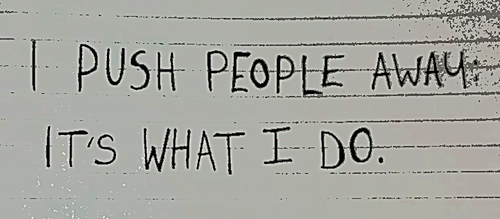 I PUSH PEOPLE AWAY.
IT'S WHAT I DO.